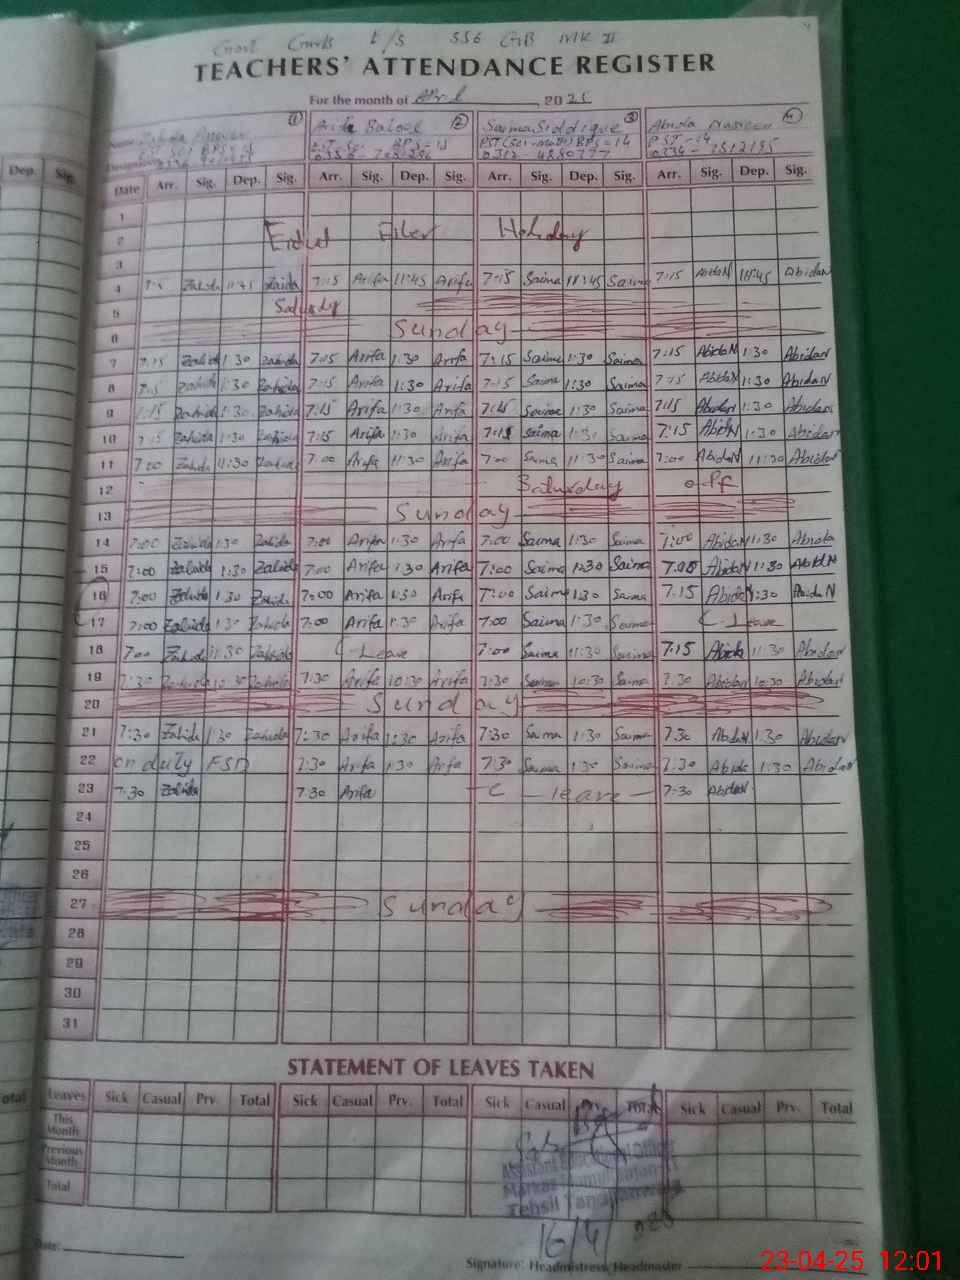 Govt Girls E/S 556 GB MK II
TEACHERS' ATTENDANCE REGISTER
For the month of April, 2025
Name Zahida Arifa Batool 2 Saima Siddique 3 Abida Nasreen 4
PST (Sci-Math) BPS=14 PST-14
0312-4880777
Date Arr. Sig. Dep. Sig. Arr. Sig. Dep. Sig. Arr. Sig. Dep. Sig. Arr. Sig. Dep. Sig.
Dep. Sig.
1
2 Eidul Fiter Holiday
3
4 Zahida 11:45 Zaida 7:15 Arifa 11:45 Arifa 7:15 Saima 11:45 Saima 7:15 AbidaN 11:45 AbidaN
5 Saturdy
6 Sunday
7 7:15 Zahida 1:30 Zahida 7:15 Arifa 1:30 Arifa 7:15 Saima 1:30 Saima 7:15 AbidaN 1:30 AbidaN
8 7:15 Zahida 1:30 Zahida 7:15 Arifa 1:30 Arifa 7:15 Saima 1:30 Saima 7:15 AbidaN 1:30 AbidaN
9 7:15 Zahida 1:30 Zahida 7:15 Arifa 1:30 Arifa 7:15 Saima 1:30 Saima 7:15 AbidaN 1:30 AbidaN
10 7:15 Zahida 1:30 Zahida 7:15 Arifa 1:30 Arifa 7:15 Saima 1:30 Saima 7:15 AbidaN 1:30 AbidaN
11 7:00 Zahida 11:30 Zahida 7:00 Arifa 11:30 Arifa 7:00 Saima 11:30 Saima 7:00 AbidaN 11:30 AbidaN
12 Saturday off
13 Sunday
14 7:00 Zahida 1:30 Zahida 7:00 Arifa 1:30 Arifa 7:00 Saima 1:30 Saima 7:00 AbidaN 1:30 Abida
15 7:00 Zahida 1:30 Zahida 7:00 Arifa 1:30 Arifa 7:00 Saima 1:30 Saima 7:00 AbidaN 1:30 AbidaN
16 7:00 Zahida 1:30 Zahida 7:00 Arifa 1:30 Arifa 7:00 Saima 1:30 Saima 7:15 AbidaN 1:30 AbidaN
17 7:00 Zahida 1:30 Zahida 7:00 Arifa 1:30 Arifa 7:00 Saima 1:30 Saima C-Leave
18 7:00 Zahida 11:30 Zahida C-Leave 7:00 Saima 11:30 Saima 7:15 Abida 11:30 AbidaN
19 7:30 Zahida 10:30 Zahida 7:30 Arifa 10:30 Arifa 7:30 Saima 10:30 Saima 7:30 AbidaN 10:30 AbidaN
20 Sunday
21 7:30 Zahida 1:30 Zahida 7:30 Arifa 1:30 Arifa 7:30 Saima 1:30 Saima 7:30 AbidaN 1:30 AbidaN
22 on duty FSD 7:30 Arifa 1:30 Arifa 7:30 Saima 1:30 Saima 7:30 Abida 1:30 AbidaN
23 7:30 Zahida 7:30 Arifa C - leave - 7:30 AbidaN
24
25
26
27 Sunday
28
29
30
31
STATEMENT OF LEAVES TAKEN
Total
Leaves Sick Casual Prv. Total Sick Casual Prv. Total Sick Casual Prv. Total Sick Casual Prv. Total
This Month
Previous Month
Total
Assistant Education Officer
Tehsil
16/4/
Date:
Signature: Headmistress, Headmaster
23-04-25 12:01